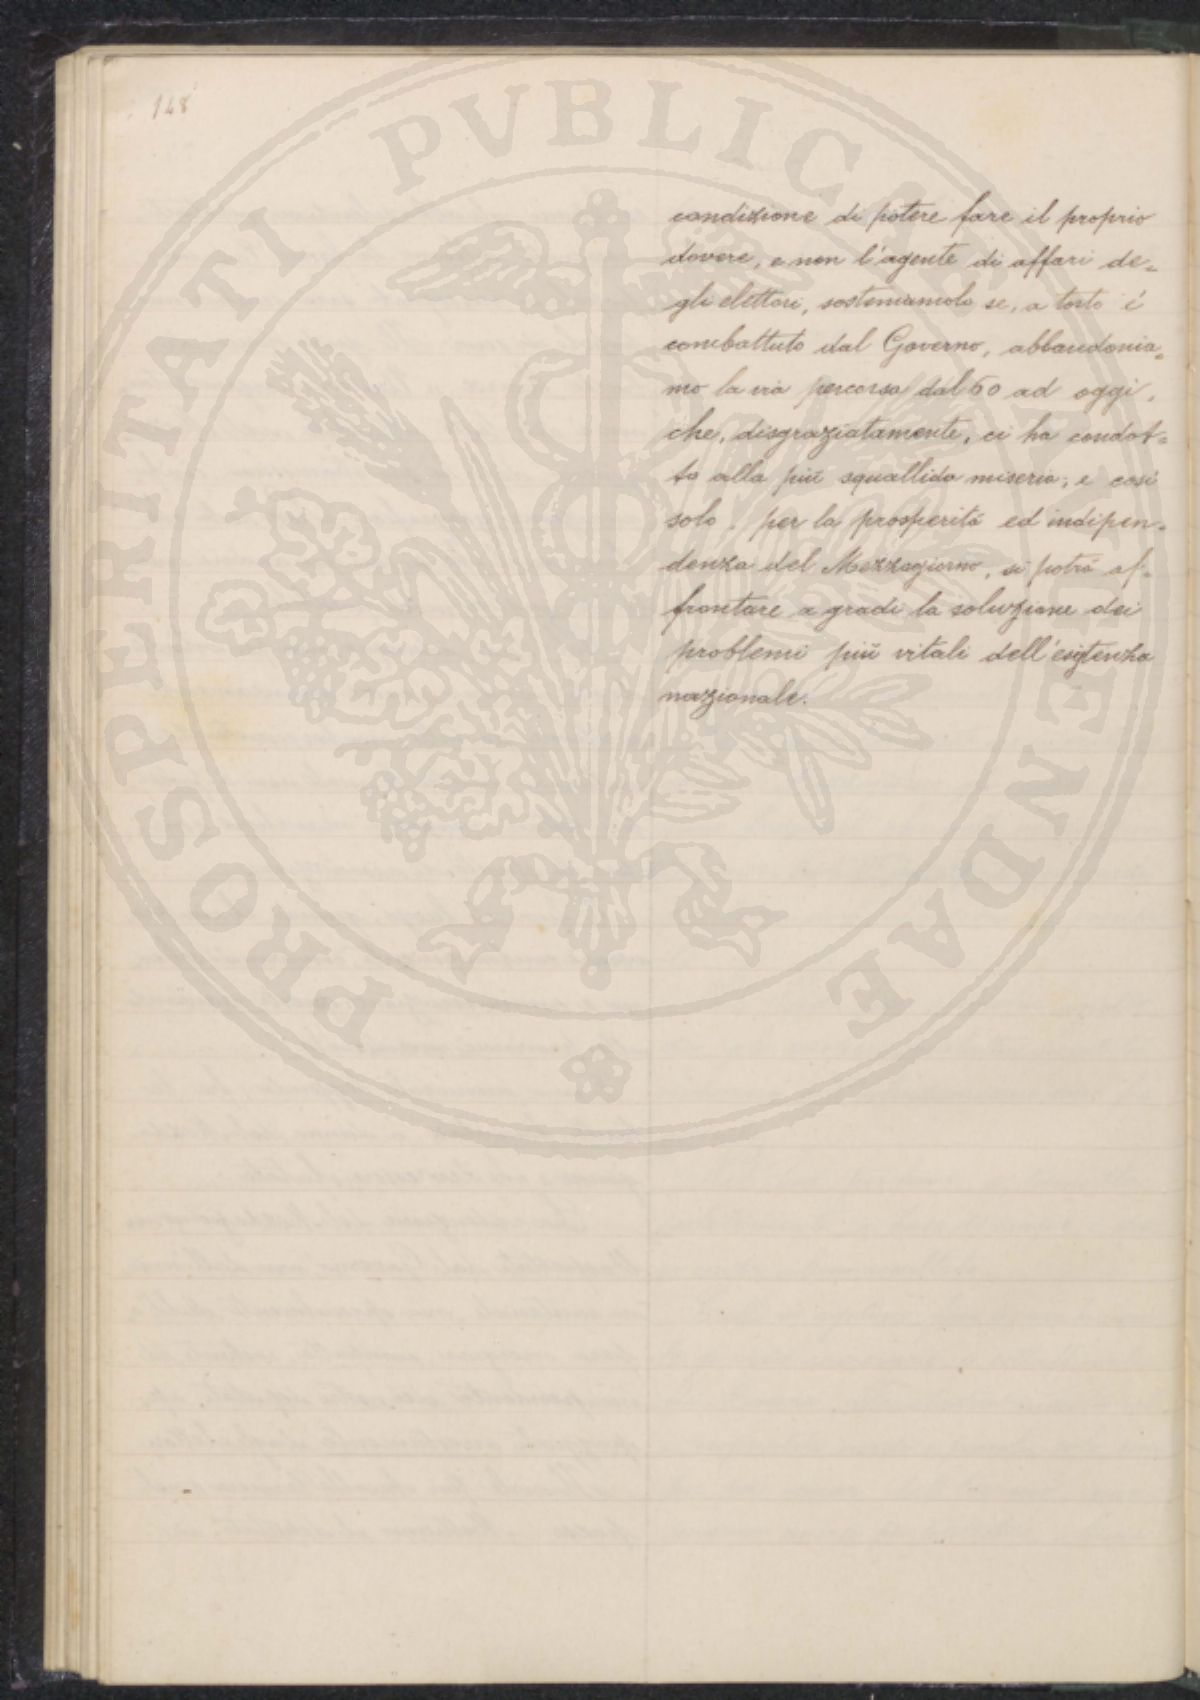 148
PROSPERITATI PVBLICAE AVGENDAE
condizione di potere fare il proprio
dovere, e non l'agente di affari de=
gli elettori, sosteniamolo se, a torto è
combattuto dal Governo, abbandonia=
mo la via percorsa dal 60 ad oggi,
che, disgraziatamente, ci ha condot=
to alla più squallida miseria; e così
solo, per la prosperità ed indipen=
denza del Mezzogiorno, si potrà af=
frontare a gradi la soluzione dei
problemi più vitali dell'esistenza
nazionale.